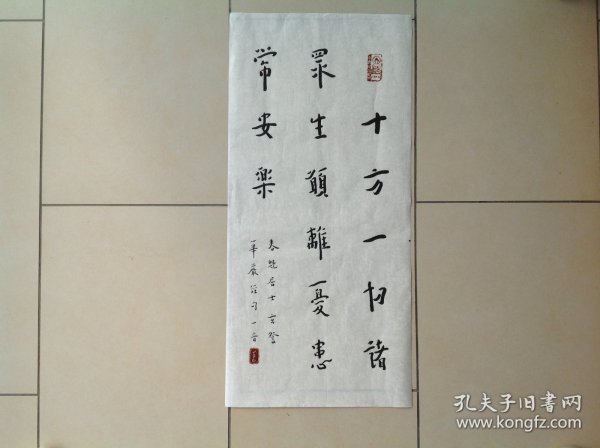 十方一切諸
眾生願離憂患
常安樂
居士玄譽
華嚴經句一音
孔夫子旧书网
www.kongfz.com